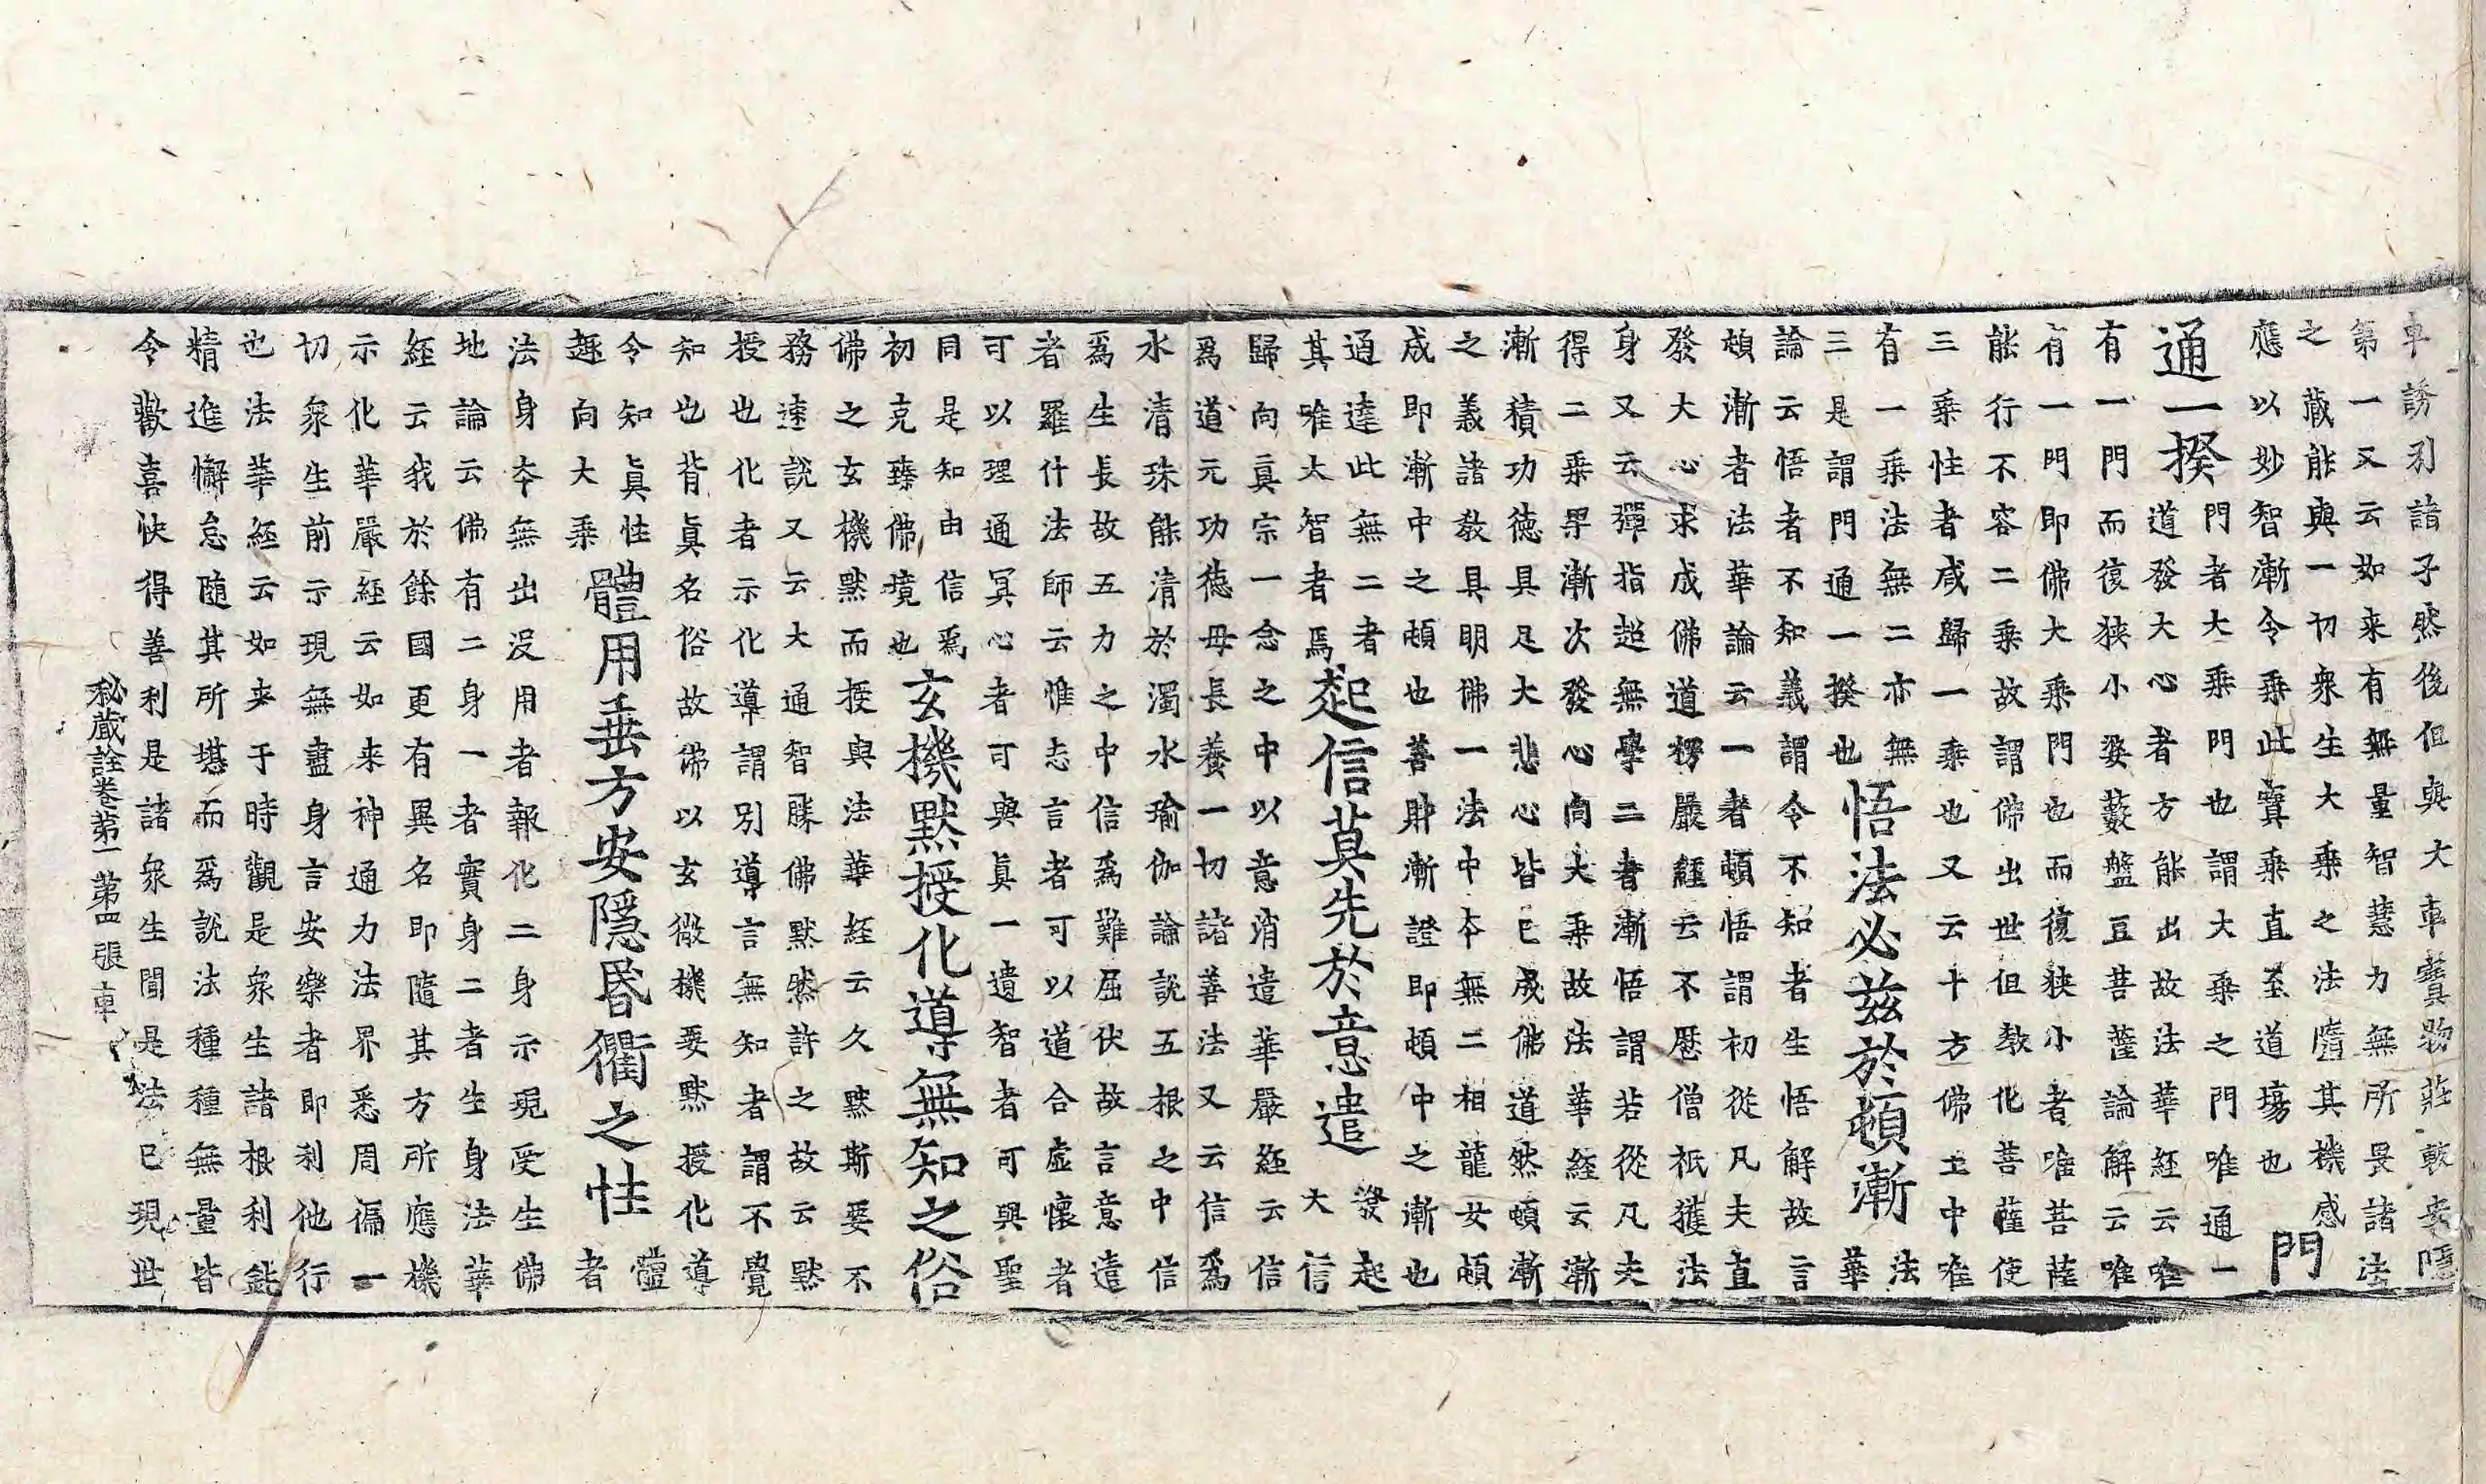 車誘引諸子然後但與大車寳物莊嚴安隱
第一又云如来有無量智慧力無所畏諸法
之藏能與一切衆生大乗之法隨其機感
應以妙智漸令乗此寳乗直至道塲也
門
通一揆
門者大乗門也謂大乗之門唯通一
道發大心者方能出故法華經云唯
有一門而復狭小婆藪盤豆菩薩論解云唯
有一門即佛大乗門也而復狭小者唯菩薩
能行不容二乗故謂佛出世但教化菩薩使
三乗性者咸歸一乗也又云十方佛土中唯
有一乗法無二亦無
三是謂門通一揆也
悟法必茲於頓漸
法
華
論云悟者不知義謂令不知者生悟解故言
頓漸者法華論云一者頓悟謂初從凡夫直
發大心求成佛道楞嚴經云不歷僧祇獲法
身又云彈指超無學二者漸悟謂若從凡夫
得二乗果漸次發心向大乗故法華經云漸
漸積功德具足大悲心皆已成佛道然頓漸
之義諸教具明佛一法中本無二相龍女頓
成即漸中之頓也善財漸證即頓中之漸也
通達此無二者
其唯大智者焉
起信莫先於意遣
發起
大信
歸向真宗一念之中以意消遣華嚴經云信
爲道元功德母長養一切諸善法又云信爲
水清珠能清於濁水瑜伽論説五根之中信
爲生長故五力之中信爲難屈伏故言意遣
者羅什法師云惟忘言者可以道合虛懷者
可以理通冥心者可與眞一遺智者可與聖
同是知由信爲
初克臻佛境也
玄機默授化導無知之俗
佛之玄機默而授與法華経云久默斯要不
務速説又云大通智勝佛默然許之故云默
授也化者示化導謂別導言無知者謂不覺
知也背眞名俗故佛以玄微機要默授化導
令知眞性
趣向大乗
體用垂方安隱昏衢之性
體
者
法身本無出沒用者報化二身示現受生佛
地論云佛有二身一者實身二者生身法華
経云我於餘國更有異名即隨其方所應機
示化華嚴経云如来神通力法界悉周徧一
切衆生前示現無盡身言安樂者即利他行
也法華経云如来于時觀是衆生諸根利鈍
精進懈怠随其所堪而爲說法種種無量皆
令歡喜快得善利是諸衆生聞是法已現世
秘藏詮卷第一 第四張 車